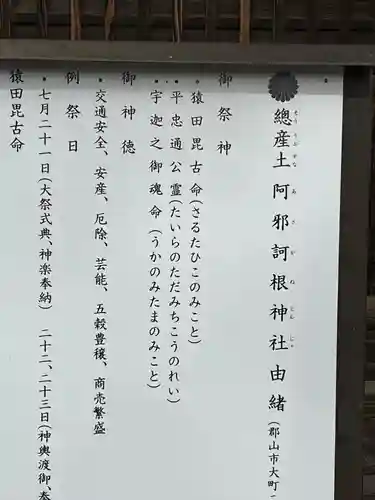 總産土 阿邪訶根神社由緒 (郡山市大町
そう うぶすな あさかねじんじゃ
御祭神
・猿田毘古命(さるたひこのみこと)
・平忠通公霊(たいらのただみちこうのれい)
・宇迦之御魂命(うかのみたまのみこと)
御神徳
・交通安全、安産、厄除、芸能、五穀豊穣、商売繁盛
例祭日
・七月二十一日(大祭式典、神楽奉納) 二十二、二十三日(神輿渡御、奉
猿田毘古命